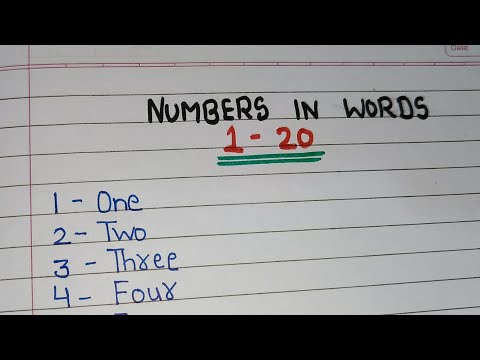 Date
NUMBERS IN WORDS
1 - 20
1 - One
2 - Two
3 - Three
4 - Four